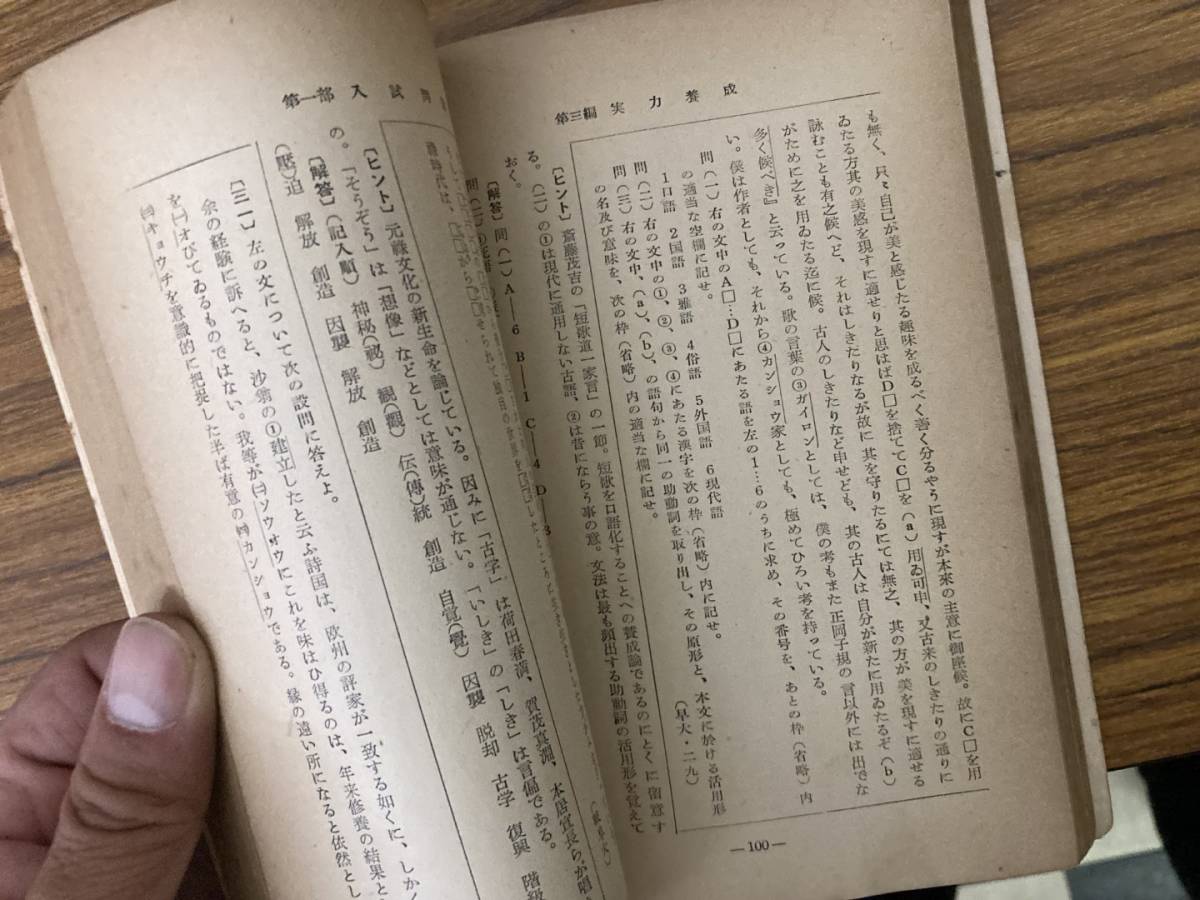 第三編 実力養成
も無く、只々自己が美と感じたる趣味を成るべく善く分るやうに現すが本来の主意に御座候。故にC□を用
ゐたる方其の美感を現すに適せりと思はばD□を捨ててC□を(a)用ゐ可申、又古来のしきたりの通りに
詠むことも有之候へど、それはしきたりなるが故に其を守りたるにては無之、其の方が美を現すに適せる
がために之を用ゐたる迄に候。古人のしきたりなど申せども、其の古人は自分が新たに用ゐたるぞ(b)
多く候べき』と云っている。歌の言葉の③ガイロンとしては、僕の考もまた正岡子規の言以外には出でな
い。僕は作者としても、それから④カンショウ家としても、極めてひろい考を持っている。
問(一)右の文中のA□…D□にあたる語を左の1…6のうちに求め、その番号を、あとの枠(省略)内
の適当な空欄に記せ。
1口語 2国語 3雅語 4俗語 5外国語 6現代語
問(二)右の文中の①、②、③、④にあたる漢字を次の枠(省略)内に記せ。
問(三)右の文中、(a)、(b)、の語句から同一の助動詞を取り出し、その原形と、本文に於ける活用形
の名及び意味を、次の枠(省略)内の適当な欄に記せ。
(早大・二九)
〔ヒント〕斎藤茂吉の「短歌道一家言」の一節。短歌を口語化することへの賛成論であるのにとくに留意す
る。(二)の①は現代に通用しない古語、②は昔にならう事の意。文法は最も頻出する助動詞の活用形を覚えて
おく。
〔解答〕問(一)A—6 B—1 C—4 D—3
—100—
第一部 入試問
〔ヒント〕元禄文化の新生命を論じている。因みに「古字」は荷田春満、賀茂真淵、本居宣長らが唱
の。「そうぞう」は「想像」などとしては意味が通じない。「いしき」の「しき」は言偏である。
〔解答〕(記入順) 神秘(祕) 観(觀) 伝(傳)統 創造 自覚(覺) 因襲 脱却 古学 復興 階級
(壓)迫 解放 創造 因襲 解放 創造
〔三一〕左の文について次の設問に答えよ。
余の経験に訴へると、沙翁の①建立したと云ふ詩国は、欧州の評家が一致する如くに、しか
を㈠オびてゐるものではない。我等が㈡ソウオウにこれを味はひ得るのは、年来修養の結果と
㈣キョウチを意識的に把捉した半ば有意の㈣カンショウである。縁の遠い所になると依然とし